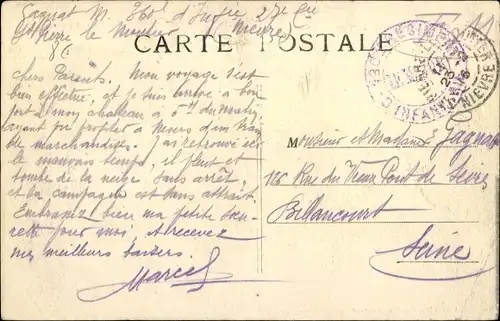 Gagnat M. 13e Rgt d'Infie 27e Cie
St Pierre le Moutier Nièvre
CARTE POSTALE
F.M.
INFANTERIE
NIEVRE
chers Parents. Mon voyage s'est
bien effectué, et je suis arrivé à bon
port al moy chateau à 5h du matin
ayant pu profiter à Nevers d'un train
de marchandises. J'ai retrouvé ici
le mauvais temps, il pleut et
tombe de la neige sans arrêt,
et la campagne est sans attrait.
Embrassez bien ma petite
pour moi, et recevez
mes meilleurs baisers.
Marcel
Monsieur et Madame Gagnat
116 Rue du Vieux Pont de Sèvres
Billancourt
Seine